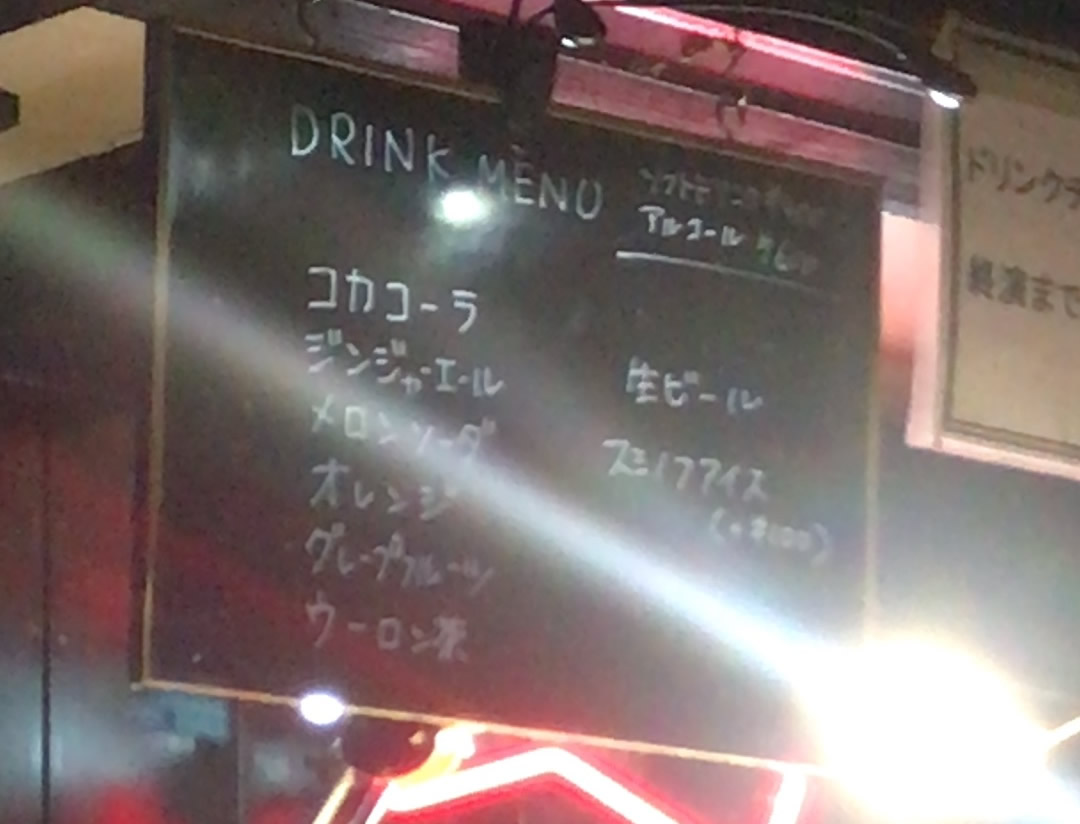 DRINK MENU
ソフトドリンク
アルコール
コカコーラ
ジンジャーエール
メロンソーダ
オレンジ
グレープフルーツ
ウーロン茶
生ビール
スミノフアイス
(+¥100)
ドリンク
終演まで